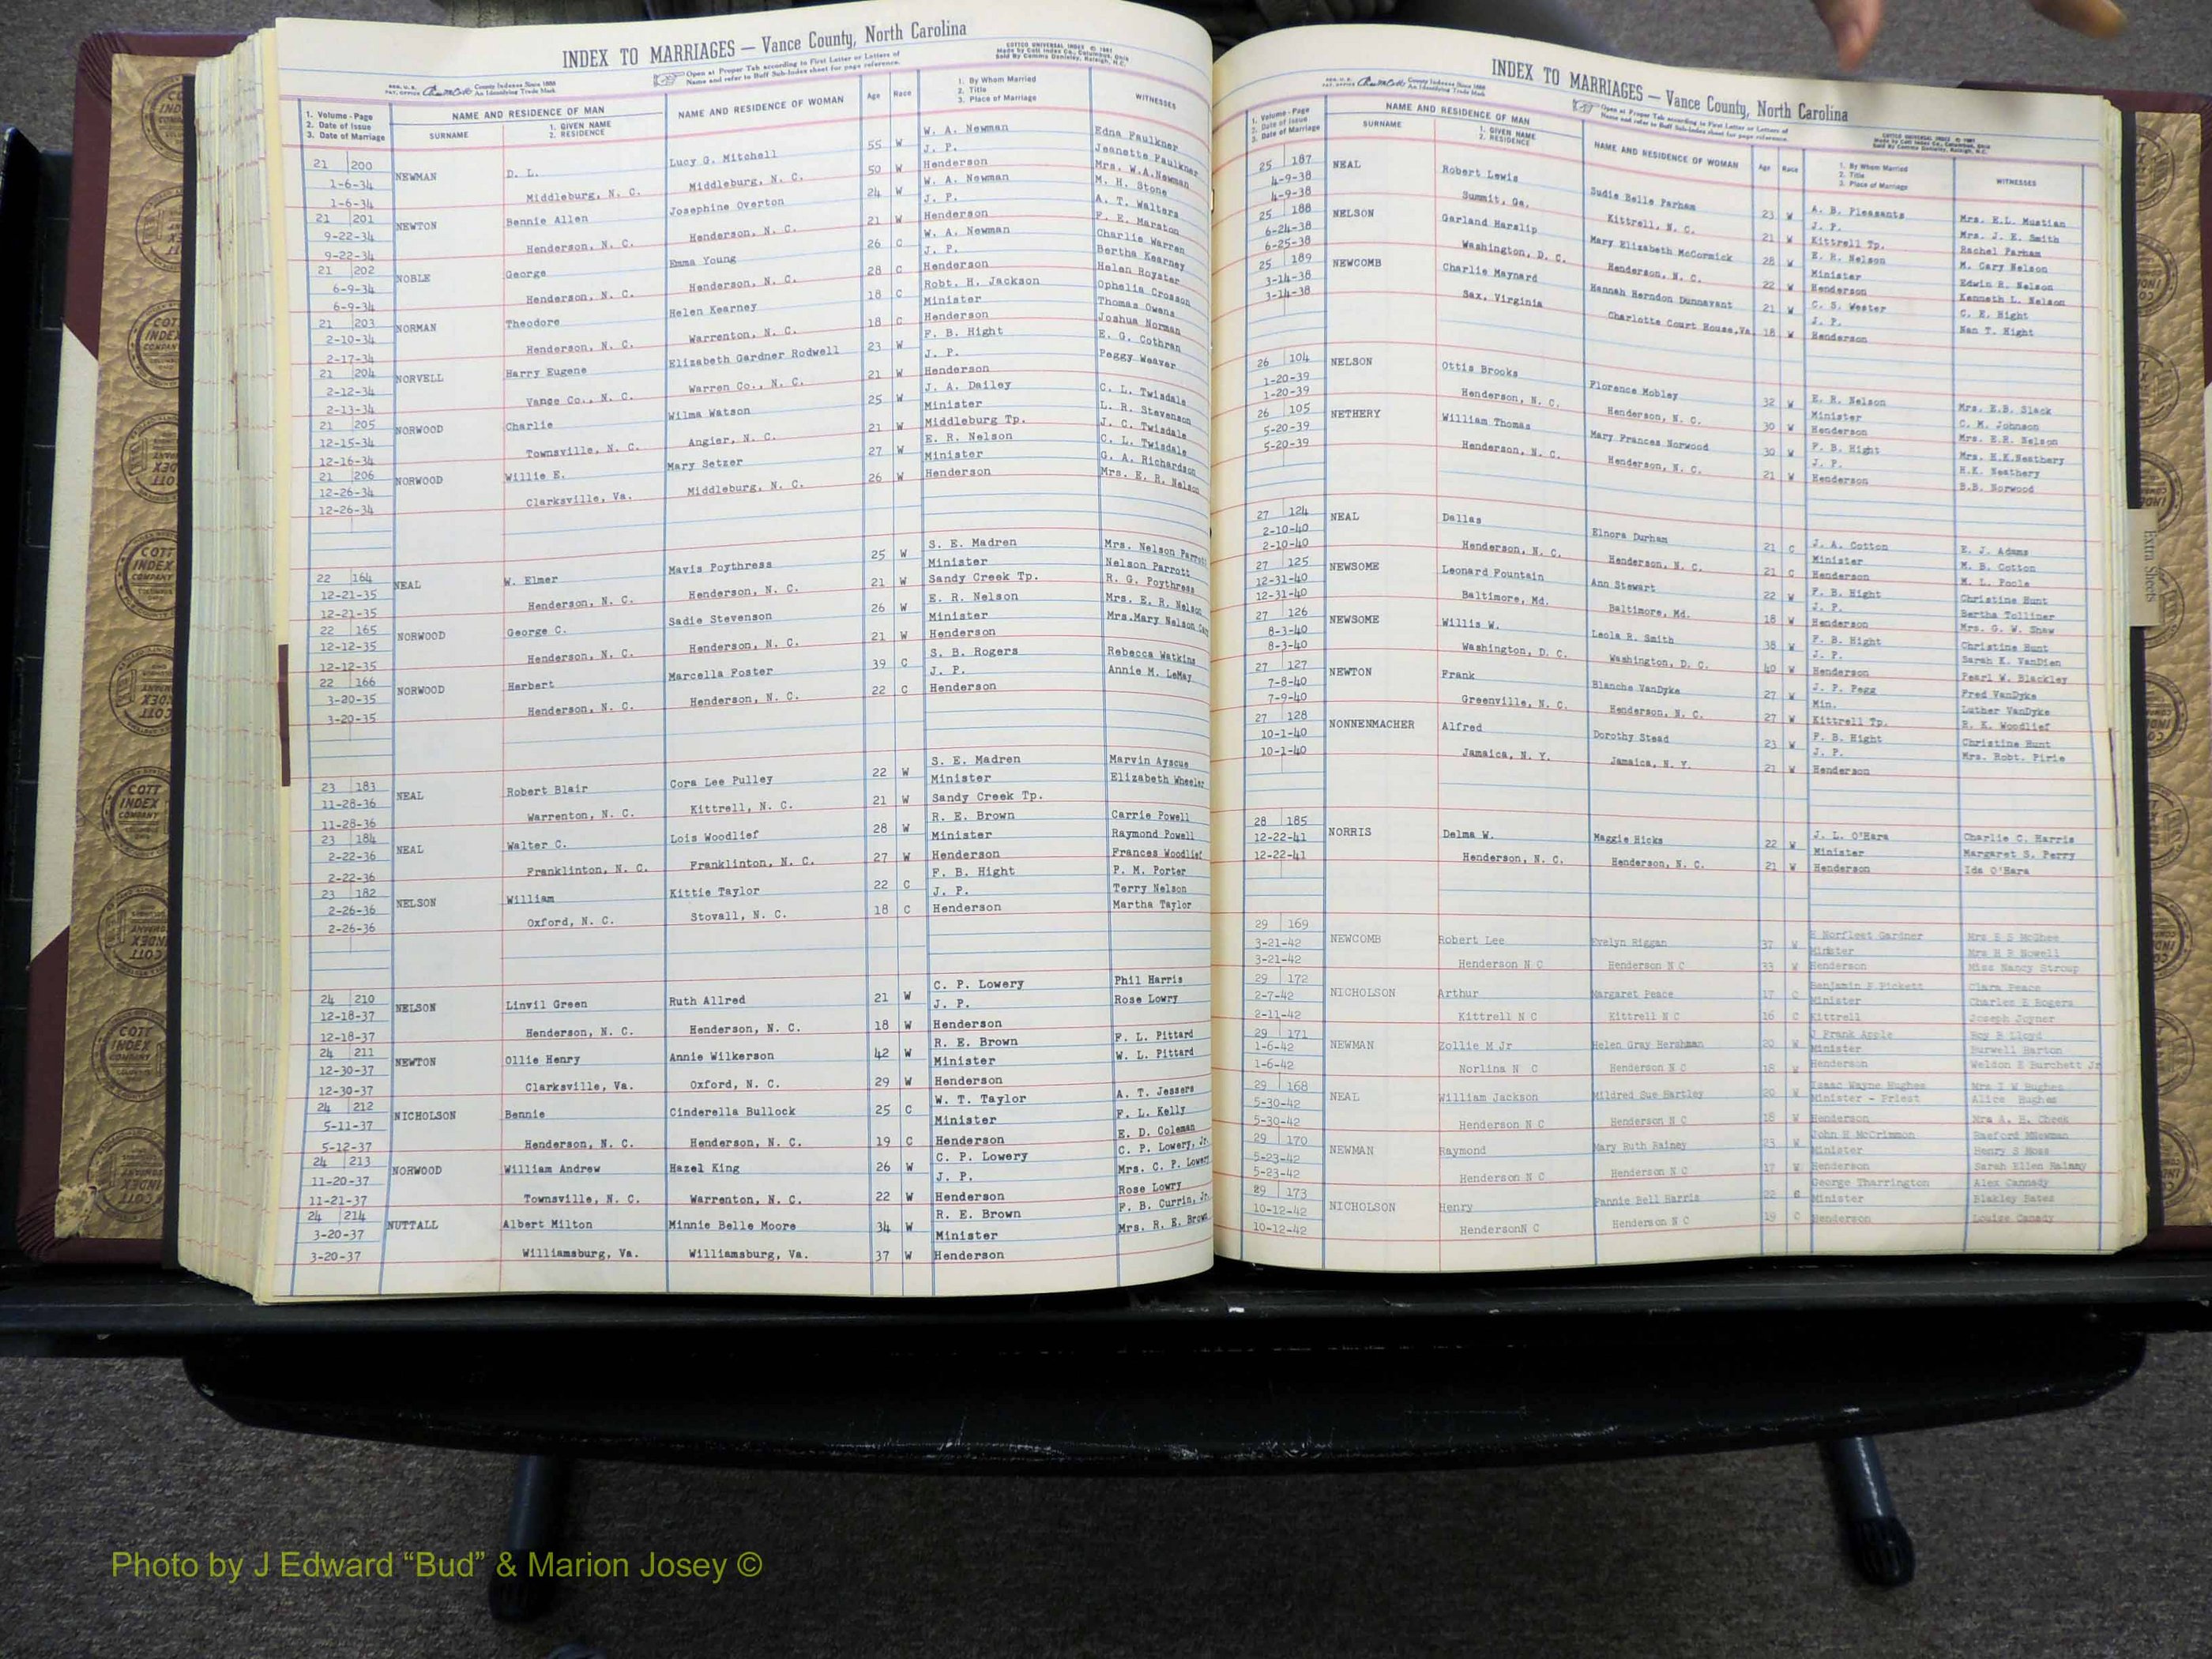 INDEX TO MARRIAGES — Vance County, North Carolina
Open at Proper Tab according to First Letter or Letters of
Name and refer to Buff Sub-Index sheet for page reference.
1. Volume - Page
2. Date of Issue
3. Date of Marriage
NAME AND RESIDENCE OF MAN
SURNAME
1. GIVEN NAME
2. RESIDENCE
NAME AND RESIDENCE OF WOMAN
Age
Race
1. By Whom Married
2. Title
3. Place of Marriage
WITNESSES
21 200 NEWMAN D. L. Lucy G. Mitchell 55 W W. A. Newman Edna Faulkner
1-6-34 Middleburg, N. C. Middleburg, N. C. 50 W J. P. Jeanette Faulkner
1-6-34 Henderson Mrs. W.A.Newman
21 201 NEWTON Bennie Allen Josephine Overton 24 W W. A. Newman M. H. Stone
9-22-34 Henderson, N. C. Henderson, N. C. 21 W J. P. A. T. Walters
9-22-34 Henderson F. E. Marston
21 202 NOBLE George Emma Young 26 C W. A. Newman Charlie Warren
6-9-34 Henderson, N. C. Henderson, N. C. 28 C J. P. Bertha Kearney
6-9-34 Henderson Helen Royster
21 203 NORMAN Theodore Helen Kearney 18 C Robt. H. Jackson Ophelia Crosson
2-10-34 Henderson, N. C. Warrenton, N. C. 18 C Minister Thomas Owens
2-17-34 Henderson Joshua Norman
21 204 NORVELL Harry Eugene Elizabeth Gardner Rodwell 23 W F. B. Hight E. G. Cothran
2-12-34 Vance Co., N. C. Warren Co., N. C. 21 W J. P. Peggy Weaver
2-13-34 Henderson
21 205 NORWOOD Charlie Wilma Watson 25 W J. A. Dailey C. L. Twisdale
12-15-34 Townsville, N. C. Angier, N. C. 21 W Minister L. R. Stevenson
12-16-34 Middleburg Tp. J. C. Twisdale
21 206 NORWOOD Willie E. Mary Setzer 27 W E. R. Nelson C. L. Twisdale
12-26-34 Clarksville, Va. Middleburg, N. C. 26 W Minister G. A. Richardson
12-26-34 Henderson Mrs. E. R. Nelson
22 164 NEAL W. Elmer Mavis Poythress 25 W S. E. Madren Mrs. Nelson Parrott
12-21-35 Henderson, N. C. Henderson, N. C. 21 W Minister Nelson Parrott
12-21-35 Sandy Creek Tp. R. G. Poythress
22 165 NORWOOD George C. Sadie Stevenson 26 W E. R. Nelson Mrs. E. R. Nelson
12-12-35 Henderson, N. C. Henderson, N. C. 21 W Minister Mrs.Mary Nelson
12-12-35 Henderson
22 166 NORWOOD Herbert Marcella Foster 39 C S. B. Rogers Rebecca Watkins
3-20-35 Henderson, N. C. Henderson, N. C. 22 C J. P. Annie M. LeMay
3-20-35 Henderson
23 183 NEAL Robert Blair Cora Lee Pulley 22 W S. E. Madren Marvin Ayscue
11-28-36 Warrenton, N. C. Kittrell, N. C. 21 W Minister Elizabeth Wheeler
11-28-36 Sandy Creek Tp.
23 184 NEAL Walter C. Lois Woodlief 28 W R. E. Brown Carrie Powell
2-22-36 Franklinton, N. C. Franklinton, N. C. 27 W Minister Raymond Powell
2-22-36 Henderson Frances Woodlief
23 182 NELSON William Kittie Taylor 22 C F. B. Hight P. M. Porter
2-26-36 Oxford, N. C. Stovall, N. C. 18 C J. P. Terry Nelson
2-26-36 Henderson Martha Taylor
24 210 NELSON Linvil Green Ruth Allred 21 W C. P. Lowery Phil Harris
12-18-37 Henderson, N. C. Henderson, N. C. 18 W J. P. Rose Lowry
12-18-37 Henderson
24 211 NEWTON Ollie Henry Annie Wilkerson 42 W R. E. Brown F. L. Pittard
12-30-37 Clarksville, Va. Oxford, N. C. 29 W Minister W. L. Pittard
12-30-37 Henderson
24 212 NICHOLSON Bennie Cinderella Bullock 25 C W. T. Taylor A. T. Jessers
5-11-37 Henderson, N. C. Henderson, N. C. 19 C Minister F. L. Kelly
5-12-37 Henderson E. D. Coleman
24 213 NORWOOD William Andrew Hazel King 26 W C. P. Lowery C. P. Lowery, Jr.
11-20-37 Townsville, N. C. Warrenton, N. C. 22 W J. P. Mrs. C. P. Lowery
11-21-37 Henderson Rose Lowry
24 214 NUTTALL Albert Milton Minnie Belle Moore 34 W R. E. Brown F. B. Currin, Jr.
3-20-37 Williamsburg, Va. Williamsburg, Va. 37 W Minister Mrs. R. E. Brown
3-20-37 Henderson
INDEX TO MARRIAGES — Vance County, North Carolina
Open at Proper Tab according to First Letter or Letters of
Name and refer to Buff Sub-Index sheet for page reference.
1. Volume - Page
2. Date of Issue
3. Date of Marriage
NAME AND RESIDENCE OF MAN
SURNAME
1. GIVEN NAME
2. RESIDENCE
NAME AND RESIDENCE OF WOMAN
Age
Race
1. By Whom Married
2. Title
3. Place of Marriage
WITNESSES
25 187 NEAL Robert Lewis Sudie Belle Parham 23 W A. B. Pleasants Mrs. E.L. Mustian
4-9-38 Summit, Ga. Kittrell, N. C. 21 W J. P. Mrs. J. E. Smith
4-9-38 Kittrell Tp. Rachel Parham
25 188 NELSON Garland Harslip Mary Elizabeth McCormick 28 W E. R. Nelson M. Cary Nelson
6-24-38 Washington, D. C. Henderson, N. C. 22 W Minister Edwin R. Nelson
6-25-38 Henderson Kenneth L. Nelson
25 189 NEWCOMB Charlie Maynard Hannah Herndon Dunnavant 21 W C. S. Wester C. E. Hight
3-14-38 Sax, Virginia Charlotte Court House,Va. 18 W J. P. Nan T. Hight
3-14-38 Henderson
26 104 NELSON Ottis Brooks Florence Mobley 32 W E. R. Nelson Mrs. E.B. Slack
1-20-39 Henderson, N. C. Henderson, N. C. 30 W Minister C. M. Johnson
1-20-39 Henderson Mrs. E.R. Nelson
26 105 NETHERY William Thomas Mary Frances Norwood 30 W F. B. Hight Mrs. H.K.Neathery
5-20-39 Henderson, N. C. Henderson, N. C. 21 W J. P. H.K. Neathery
5-20-39 Henderson B.B. Norwood
27 124 NEAL Dallas Elnora Durham 21 C J. A. Cotton E. J. Adams
2-10-40 Henderson, N. C. Henderson, N. C. 21 C Minister M. B. Cotton
2-10-40 Henderson M. L. Poole
27 125 NEWSOME Leonard Fountain Ann Stewart 22 W F. B. Hight Christine Hunt
12-31-40 Baltimore, Md. Baltimore, Md. 18 W J. P. Bertha Tolliner
12-31-40 Henderson Mrs. G. W. Shaw
27 126 NEWSOME Willis W. Leola R. Smith 38 W F. B. Hight Christine Hunt
8-3-40 Washington, D. C. Washington, D. C. 40 W J. P. Sarah K. VanDien
8-3-40 Henderson Pearl W. Blackley
27 127 NEWTON Frank Blanche VanDyke 27 W J. P. Pegg Fred VanDyke
7-8-40 Greenville, N. C. Henderson, N. C. 27 W Min. Luther VanDyke
7-9-40 Kittrell Tp. R. K. Woodlief
27 128 NONNENMACHER Alfred Dorothy Stead 23 W F. B. Hight Christine Hunt
10-1-40 Jamaica, N. Y. Jamaica, N. Y. 21 W J. P. Mrs. Robt. Pirie
10-1-40 Henderson
28 185 NORRIS Delma W. Maggie Hicks 22 W J. L. O'Hara Charlie C. Harris
12-22-41 Henderson, N. C. Henderson, N. C. 21 W Minister Margaret S. Perry
12-22-41 Henderson Ida O'Hara
29 169 NEWCOMB Robert Lee Evelyn Riggan 37 W Norfleet Gardner Mrs E S McGhee
3-21-42 Henderson N C Henderson N C 33 W Minister Mrs H R Nowell
3-21-42 Henderson Miss Nancy Stroup
29 172 NICHOLSON Arthur Margaret Peace 17 C Benjamin F Pickett Clara Peace
2-7-42 Kittrell N C Kittrell N C 16 C Minister Charles E Rogers
2-11-42 Kittrell Joseph Joyner
29 171 NEWMAN Zollie M Jr Helen Gray Hershman 20 W J Frank Apple Roy B Lloyd
1-6-42 Norlina N C Henderson N C 18 W Minister Burwell Harton
1-6-42 Henderson Weldon E Burchett Jr
29 168 NEAL William Jackson Mildred Sue Hartley 20 W Isaac Wayne Hughes Mrs I W Hughes
5-30-42 Henderson N C Henderson N C 18 W Minister - Priest Alice Hughes
5-30-42 Henderson Mrs A. H. Cheek
29 170 NEWMAN Raymond Mary Ruth Rainey 23 W John H McCrimmon
5-23-42 Henderson N C Henderson N C 17 W Minister Henry S Moss
5-23-42 Henderson Sarah Ellen Rainey
29 173 NICHOLSON Henry Fannie Bell Harris 22 C George Tharrington Alex Cannady
10-12-42 HendersonN C Henderson N C 19 C Minister Blakley Bates
10-12-42 Henderson Louise Canady
Extra Sheets
COTT INDEX COMPANY
Photo by J Edward “Bud” & Marion Josey ©